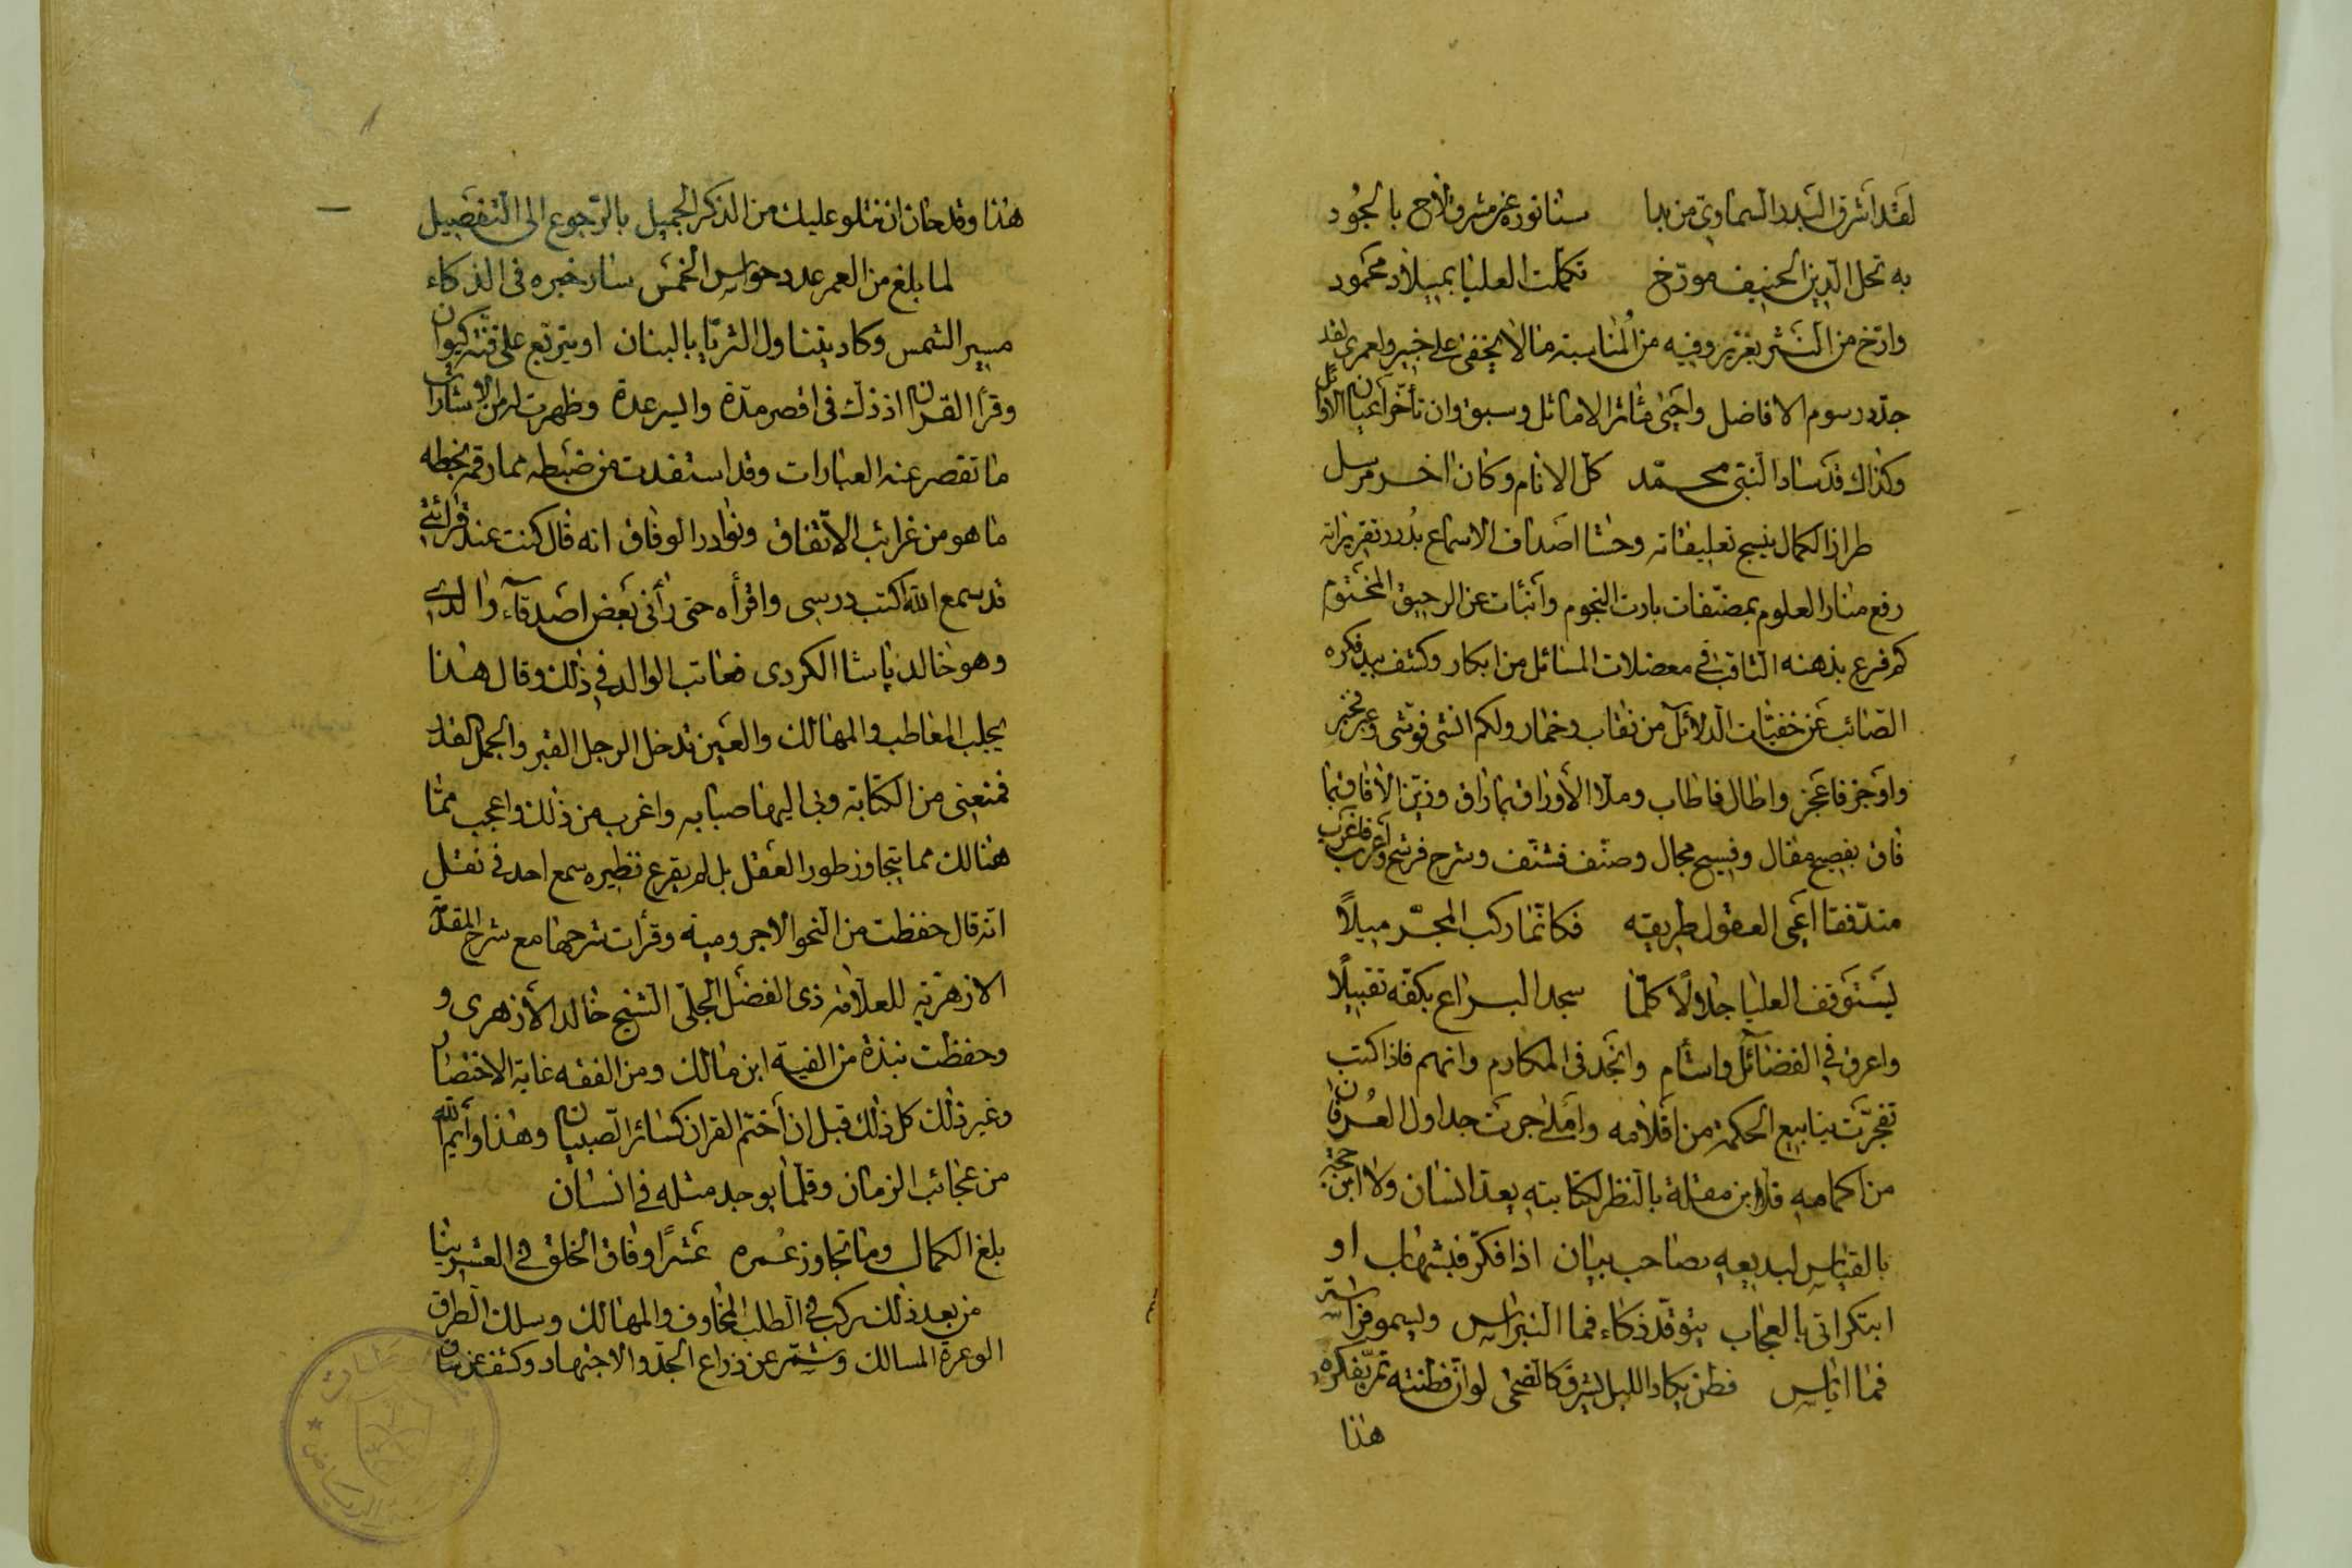 لقد اشرق البدر السماوي من بدا سنا نوره عن مشرق لاح بالجود
به تحل الدين الحنيف مورخ تكملت العليا بميلاد محمود
وارخ من النثر بغزير وفيه من المناسبة ما لا يخفى على خبير ولعمري لقد
جدد رسوم الافاضل واحيى مآثر الاماثل وسبق وان تأخر اعيان الاوائل
وكذاك قد ساد النبي محمد كل الانام وكان اخر مرسل
طراز الكمال بنسج تعليقاته وحشا اصداف الاسماع بدرر تقريراته
رفع منار العلوم بمصنفات بارت النجوم وانبئات عن الرحيق المختوم
كم فرع بذهنه الثاقب في معضلات المسائل من ابكار وكشف بيد فكره
الصائب عن خفيات الدلائل من نقاب وخمار ولكم انشى فوشى وعبر فحبر
واوجز فاعجز واطال فاطاب وملأ الأوراق بما راق وزين الآفاق بما
فاق بفصيح مقال وفسيح مجال وصنف فشنف وشرح فرشح وأعرب فاغرب
متدفقا اعمى العقول طريقه فكانما ركب المجر مبيلاً
يستوقف العليا جلالاً كلما سجد اليراع بكفه تقبيلاً
واعرق في الفضائل واشأم وانجد في المكارم واتهم فاذا كتب
تفجرت ينابيع الحكمة من اقلامه واملى جرت جداول العرفان
من اكمامه فلا ابن مقلة بالنظر لكتابته يعد انسان ولا ابن حجة
بالقياس لبديعه صاحب بيان اذا فكر فبشهاب او
ابتكر اتى بالعجاب يتوقد ذكاء فما النبراس ويسمو فراسة
فما اياس فطن يكاد الليل يشرق كالضحى لو ان فطنته تمر بفكره
هذا
هذا وقد حان ان نتلو عليك من الذكر الجميل بالرجوع الى التفصيل
لما بلغ من العمر عدد حواس الخمس سار خبره في الذكاء
مسير الشمس وكاد يتناول الثريا بالبنان او يتربع على قنة كيوان
وقرأ القران اذ ذك في اقصر مدة وايسر عدة وظهرت له من الاشارات
ما تقصر عنه العبارات وقد استفدت من ضبطه مما رقمه بخطه
ما هو من غرائب الاتفاق ونوادر الوفاق انه قال كنت عند قرائتي
قد سمع الله اكتب درسي واقرأه حتى رأني بعض اصدقاء والدي
وهو خالد پاشا الكردي فعاتب الوالد في ذلك وقال هذا
يجلب المعاطب والمهالك والعين تدخل الرجل القبر والجمل القدر
فمنعني من الكتابة وبي اليها صبابه واغرب من ذلك واعجب مما
هنالك مما يتجاوز طور العقل بل لم يقرع نظيره سمع احد في نقل
انه قال حفظت من النحو الاجرومية وقرأت شرحها مع شرح المقدمة
الازهرية للعلامة ذي الفضل الجلي الشيخ خالد الأزهري و
وحفظت نبذة من الفية ابن مالك ومن الفقه غاية الاختصار
وغير ذلك كل ذلك قبل ان أختم القران كسائر الصبيان وهذا وأيم الله
من عجائب الزمان وقلما يوجد مثله في انسان
بلغ الكمال وما تجاوز عمره عشرًا وفاق الخلق في العشرينا
من بعد ذلك ركب في الطلب المخاوف والمهالك وسلك الطرق
الوعرة المسالك وشمر عن ذراع الجد والاجتهاد وكشف عن ساق